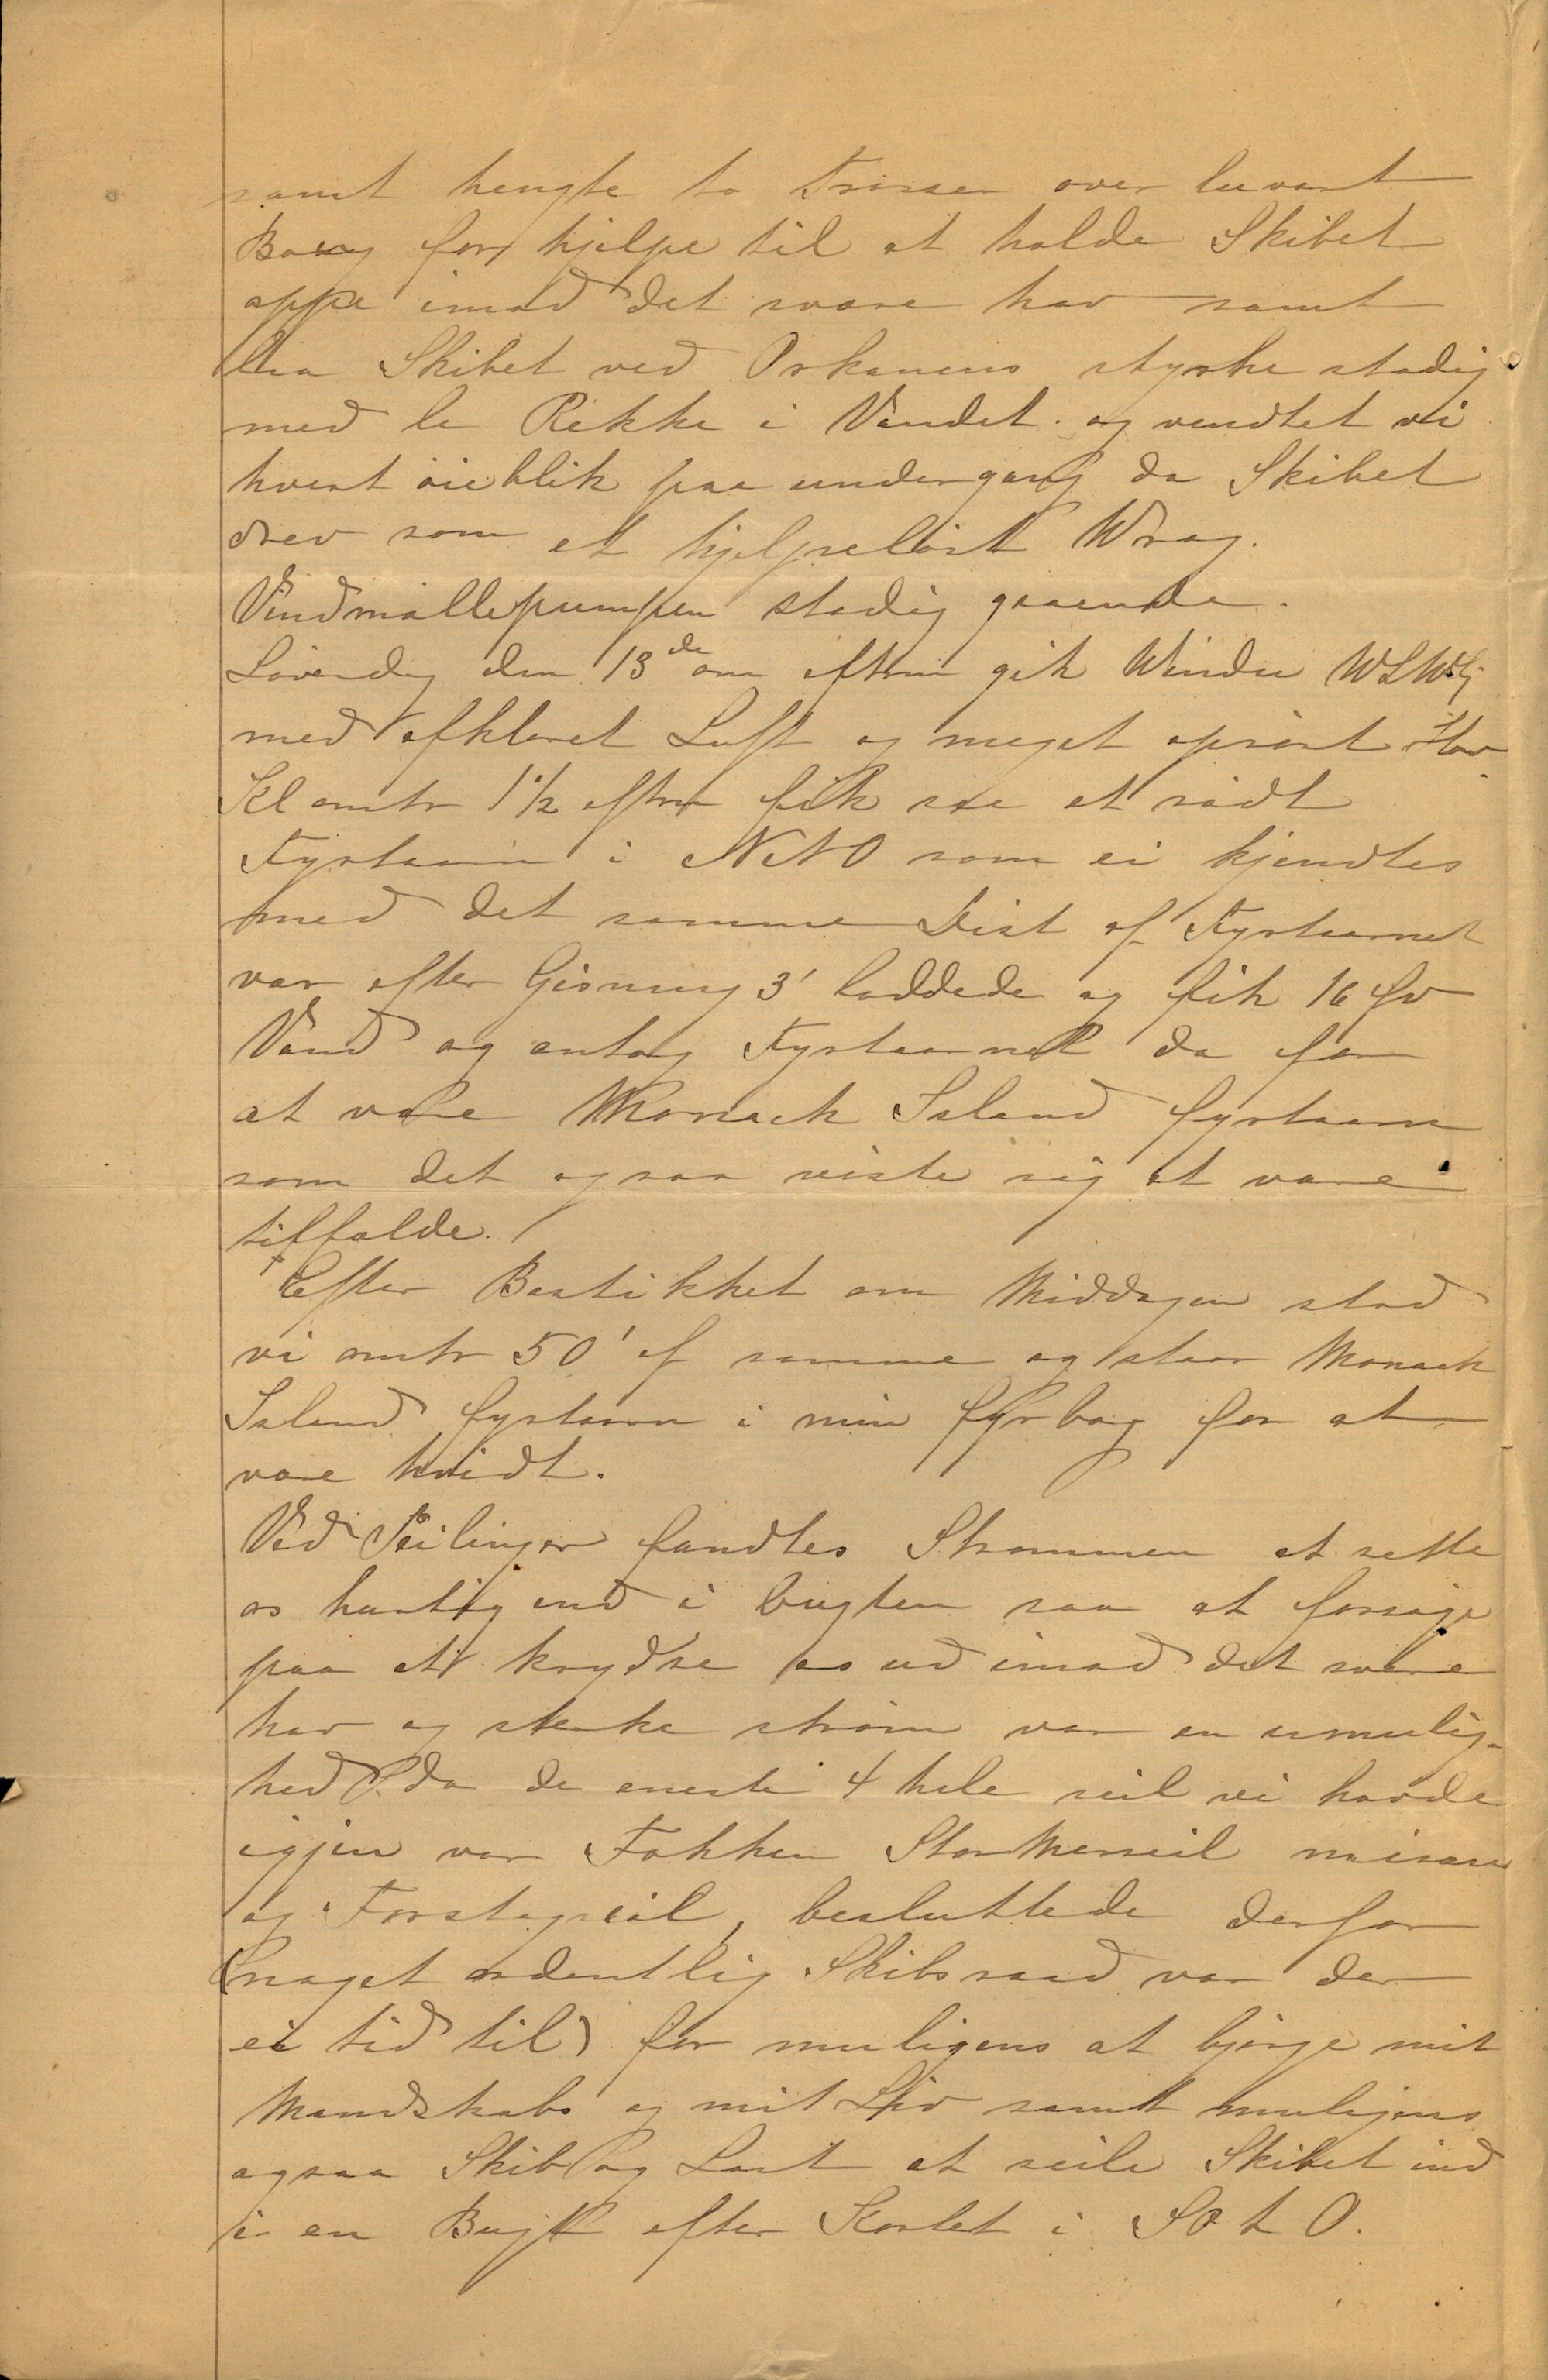 samt hengte to Trosser over luvart
Boug for hjelpe til at holde Skibet
oppe imod det svare hav samt
laa Skibet ved Orkanens styrke stadig
med le Rekke i Vandet. og vendtet vi
hvert øieblik paa undergang da Skibet
drev som et hjelpeløst Wrag.
Vindmøllepumpen stadig gaaende.
Løverdag den 13de om efterm gik Winden WSW
med afklaret Luft og meget oprørt Hav
Kl omtr 1½ efterm fik see et rødt
Fyrtaarn i NNO som ei kjendtes
med det samme Dist af Fyrtaarnet
var efter Gisning 3' loddede og fik 16 fv
Vand og antog Fyrtaarnet da for
at vere Monach Island fyrtaarn
som det ogsaa viste sig at vare
tilfalde.
Efter Bestikket om Middagen stod
vi omtr 50' af samme og staar Monach
Island fyrtaarn i min fyrbog for at
vare hvidt.
Ved Peilinger fandtes Strømmen at sette
os hurtig ind i bugten saa at forsøge
paa at krydse os ud imod det svare
hav og sterke strøm var en umulig-
hed da de eneste 4 hele seil vi havde
igjen var Fokken Stormerseil misan
og Forstagseil, besluttede derfor
(noget ordentlig Skibsraad var der
ei tid til) for muligens at bjerge mit
Mandskabs og mit Liv samt muligens
ogsaa Skib og Last at seile Skibet ind
i en Bugt efter Kartet i SO t O.